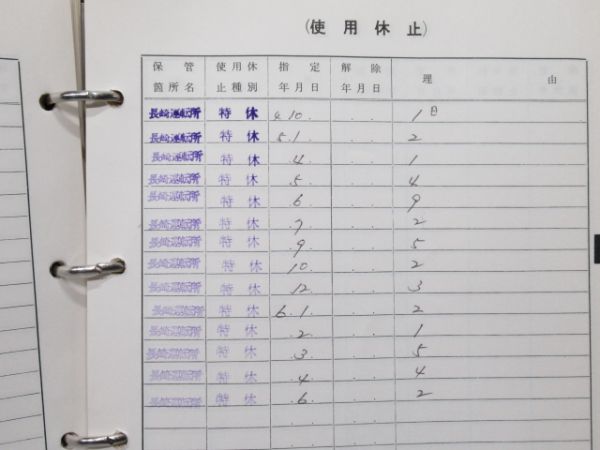 (使用休止)
保管箇所名 使用休止種別 指定年月日 解除年月日 理由
長崎運転所 特休 4.10. . . 1日
長崎運転所 特休 5.1. . . 2
長崎運転所 特休 .4. . . 1
長崎運転所 特休 .5. . . 4
長崎運転所 特休 .6. . . 9
長崎運転所 特休 .7. . . 2
長崎運転所 特休 .9. . . 5
長崎運転所 特休 .10. . . 2
長崎運転所 特休 .12. . . 3
長崎運転所 特休 6.1. . . 2
長崎運転所 特休 .2. . . 1
長崎運転所 特休 .3. . . 5
長崎運転所 特休 .4. . . 4
長崎運転所 特休 .6. . . 2